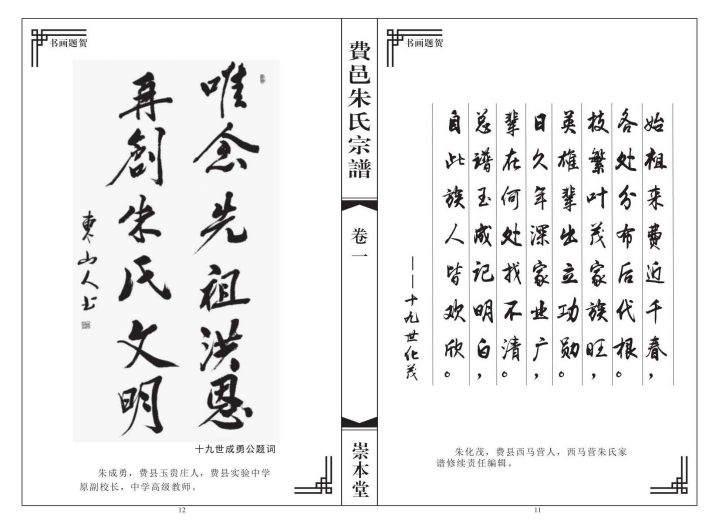 书画题贺
始祖来费近千春，
各处分布后代根。
枝繁叶茂家族旺，
英雄辈出立功勋。
日久年深家业广，
辈在何处找不清。
总谱玉成记明白，
自此族人皆欢欣。
——十九世化茂
朱化茂，费县西马营人，西马营朱氏家
谱修续责任编辑。
11
費邑朱氏宗譜
卷一
崇本堂
书画题贺
唯念先祖洪恩
再創朱氏文明
東山人书
十九世成勇公题词
朱成勇，费县玉贵庄人，费县实验中学
原副校长，中学高级教师。
12